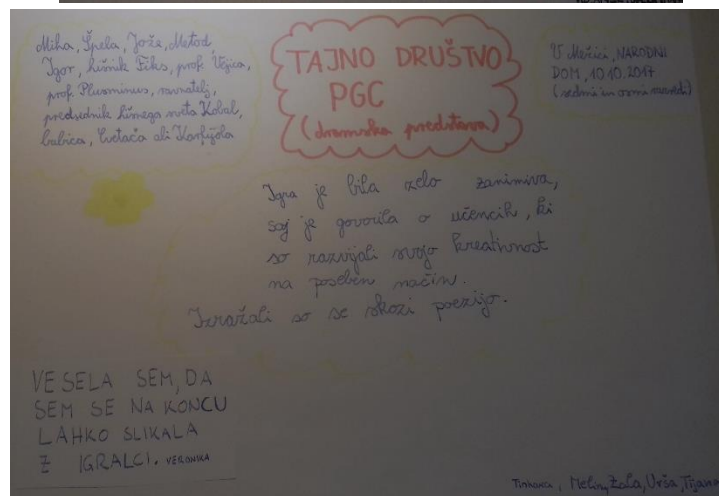 Miha, Špela, Jože, Metod,
Igor, hišnik Fiks, prof. Vejica,
prof. Plusminus, ravnatelj,
predsednik hišnega sveta Kobal,
babica, Cvetača ali Karfijola
TAJNO DRUŠTVO
PGC
(dramska predstava)
V Mežici, NARODNI
DOM, 10.10.2017
(sedmi in osmi razredi)
Igra je bila zelo zanimiva,
saj je govorila o učencih, ki
so razvijali svojo kreativnost
na poseben način.
Izražali so se skozi poezijo.
VESELA SEM, DA
SEM SE NA KONCU
LAHKO SLIKALA
Z IGRALCI. VERONIKA
Melin, Zala, Urša, Tijana